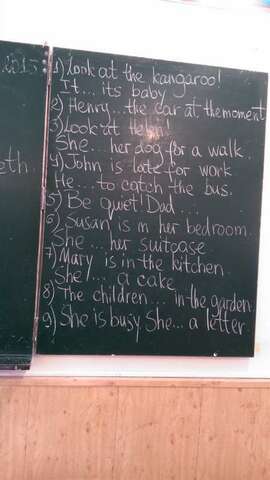 2013
eth.
1) Look at the kangaroo!
It... its baby
2) Henry... the car at the moment
3) Look at Helen!
She... her dog for a walk.
4) John is late for work.
He... to catch the bus.
5) Be quiet! Dad...
6) Susan is in her bedroom.
She... her suitcase.
7) Mary is in the kitchen.
She... a cake
8) The children... in the garden.
9) She is busy. She... a letter